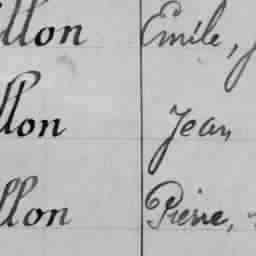 llon Emile,
llon Jean
llon Pierre,